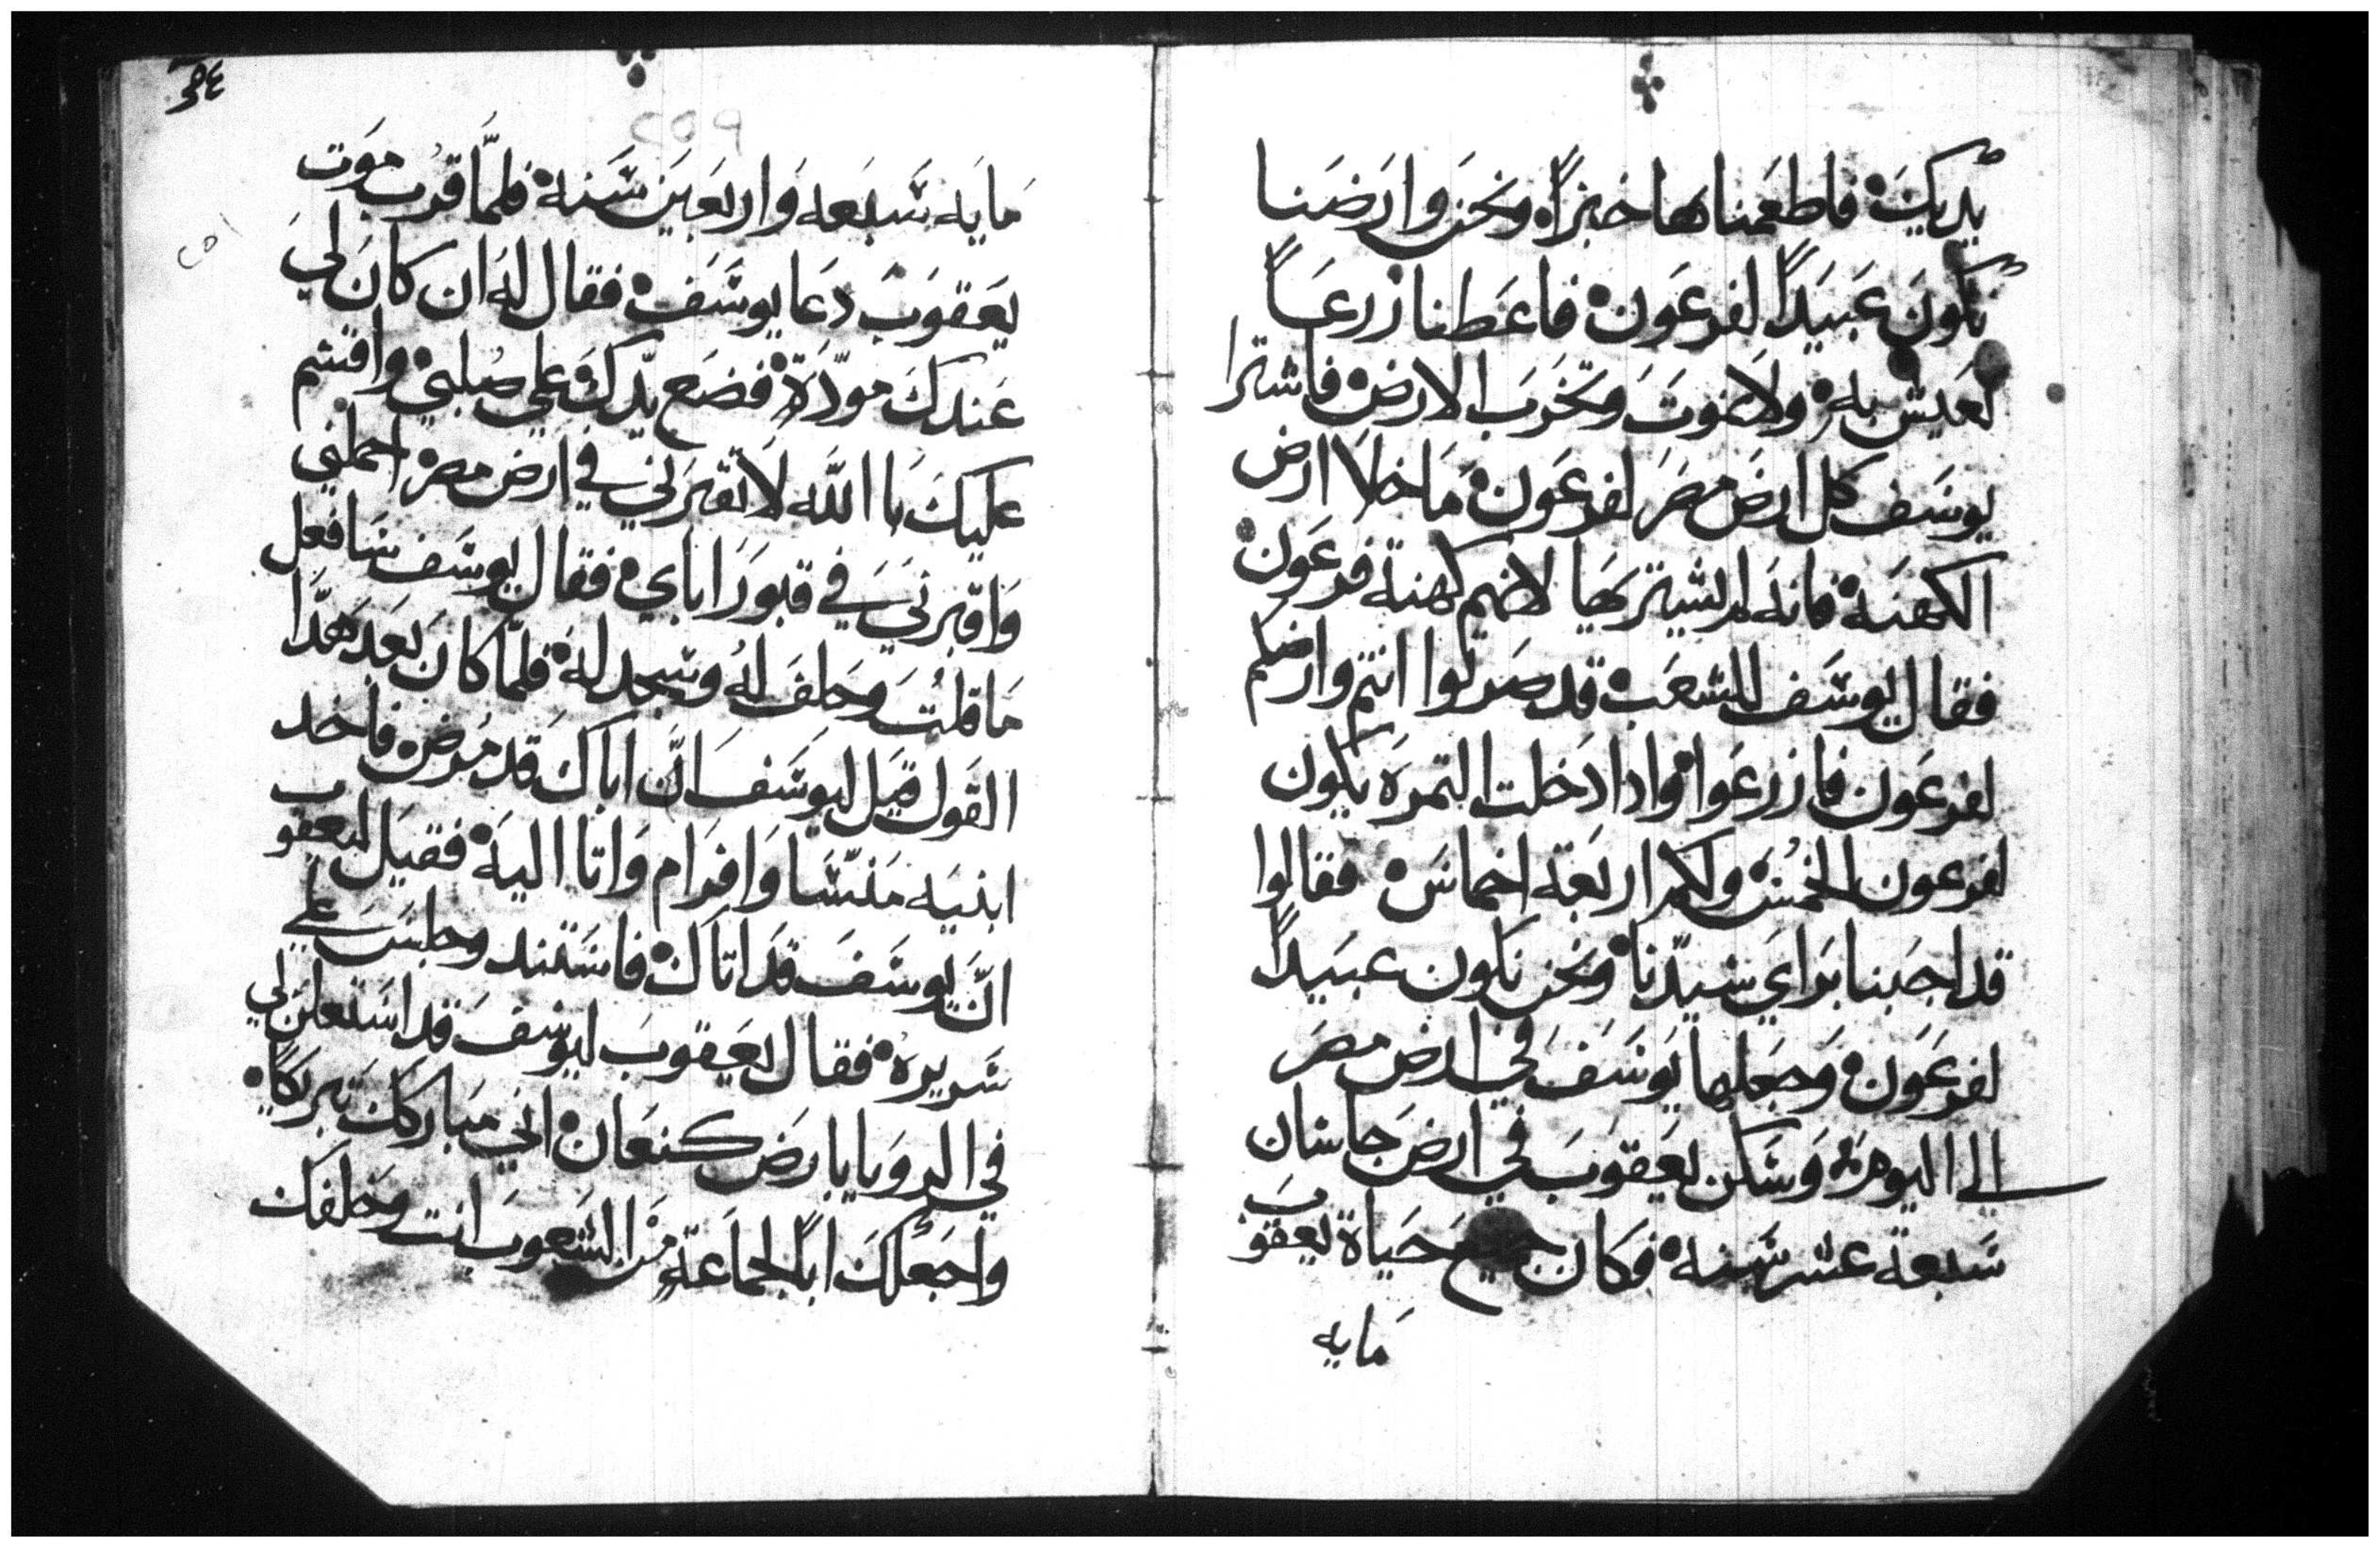 يديك فاطعمناها خبزاً ونحن وارضنا
نكون عبيداً لفرعون فاعطنا زرعاً
لنعيش به ولا نموت وتخرب الارض فاشترا
يوسف كل ارض مصر لفرعون ما خلا ارض
الكهنه فانه لم يشتريها لانهم كهنة فرعون
فقال يوسف للشعب قد صرتوا انتم وارضكم
لفرعون فازرعوا وادا دخلت التمره يكون
لفرعون الخمس ولكم اربعة اخماس فقالوا
قد اجبنا براي سيدنا ونحن نكون عبيداً
لفرعون وجعلها يوسف في ارض مصر
الي اليوم وسكن يعقوب في ارض جاسان
سبعة عشر سنه فكان جميع حياة يعقوب
مايه
مايه سبعه واربعين سنه فلمّا قرب موت
يعقوب دعا يوسف فقال له ان كان لي
عندك مودّة فضع يدك علي صلبي واقسم
عليك با الله لا تقبرني في ارض مصر احملني
واقبرني في قبور اباي فقال يوسف سافعل
ما قلت وحلف له وسجد له فلمّا كان بعد هدا
القول قيل ليوسف انّ اباك قد مرض فاخد
ابنيه منسّا وافرام واتا اليه فقيل ليعقوب
انّ يوسف قد اتاك فاستند وجلس علي
سريره فقال يعقوب ليوسف قد استعلن لي
في الرويا بارض كنعان اني مباركك تبريكاً
واجعلك اباً لجماعة من الشعوب انت وخلفك